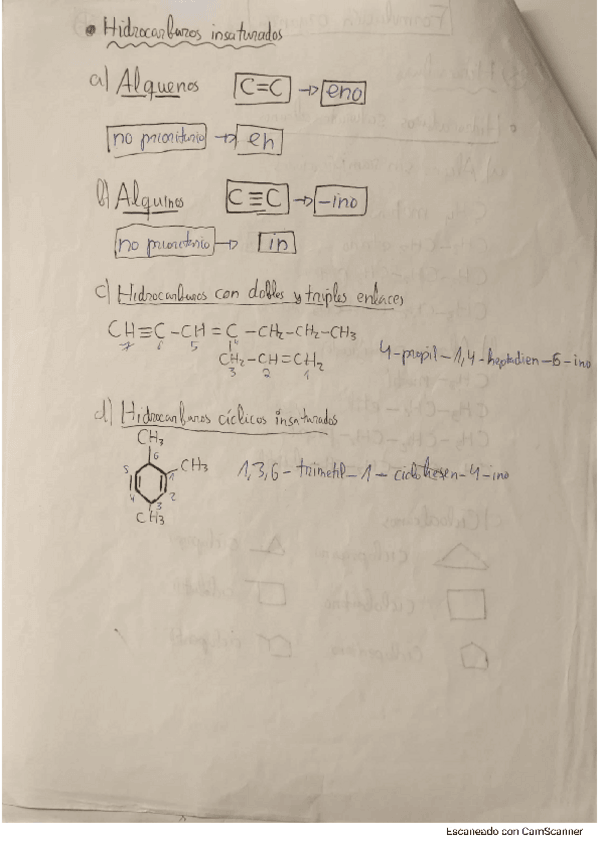 • Hidrocarburos insaturados
a) Alquenos C=C → eno
no prioritario → en
b) Alquinos C≡C → -ino
no prioritario → in
c) Hidrocarburos con dobles y triples enlaces
CH≡C-CH=C-CH₂-CH₂-CH₃
7 6 5 4
CH₂-CH=CH₂
3 2 1
4-propil-1,4-heptadien-6-ino
d) Hidrocarburos cíclicos insaturados
CH₃
6
5 1 CH₃
4 2
3
CH₃
1,3,6-trimetil-1-ciclohexen-4-ino
Escaneado con CamScanner